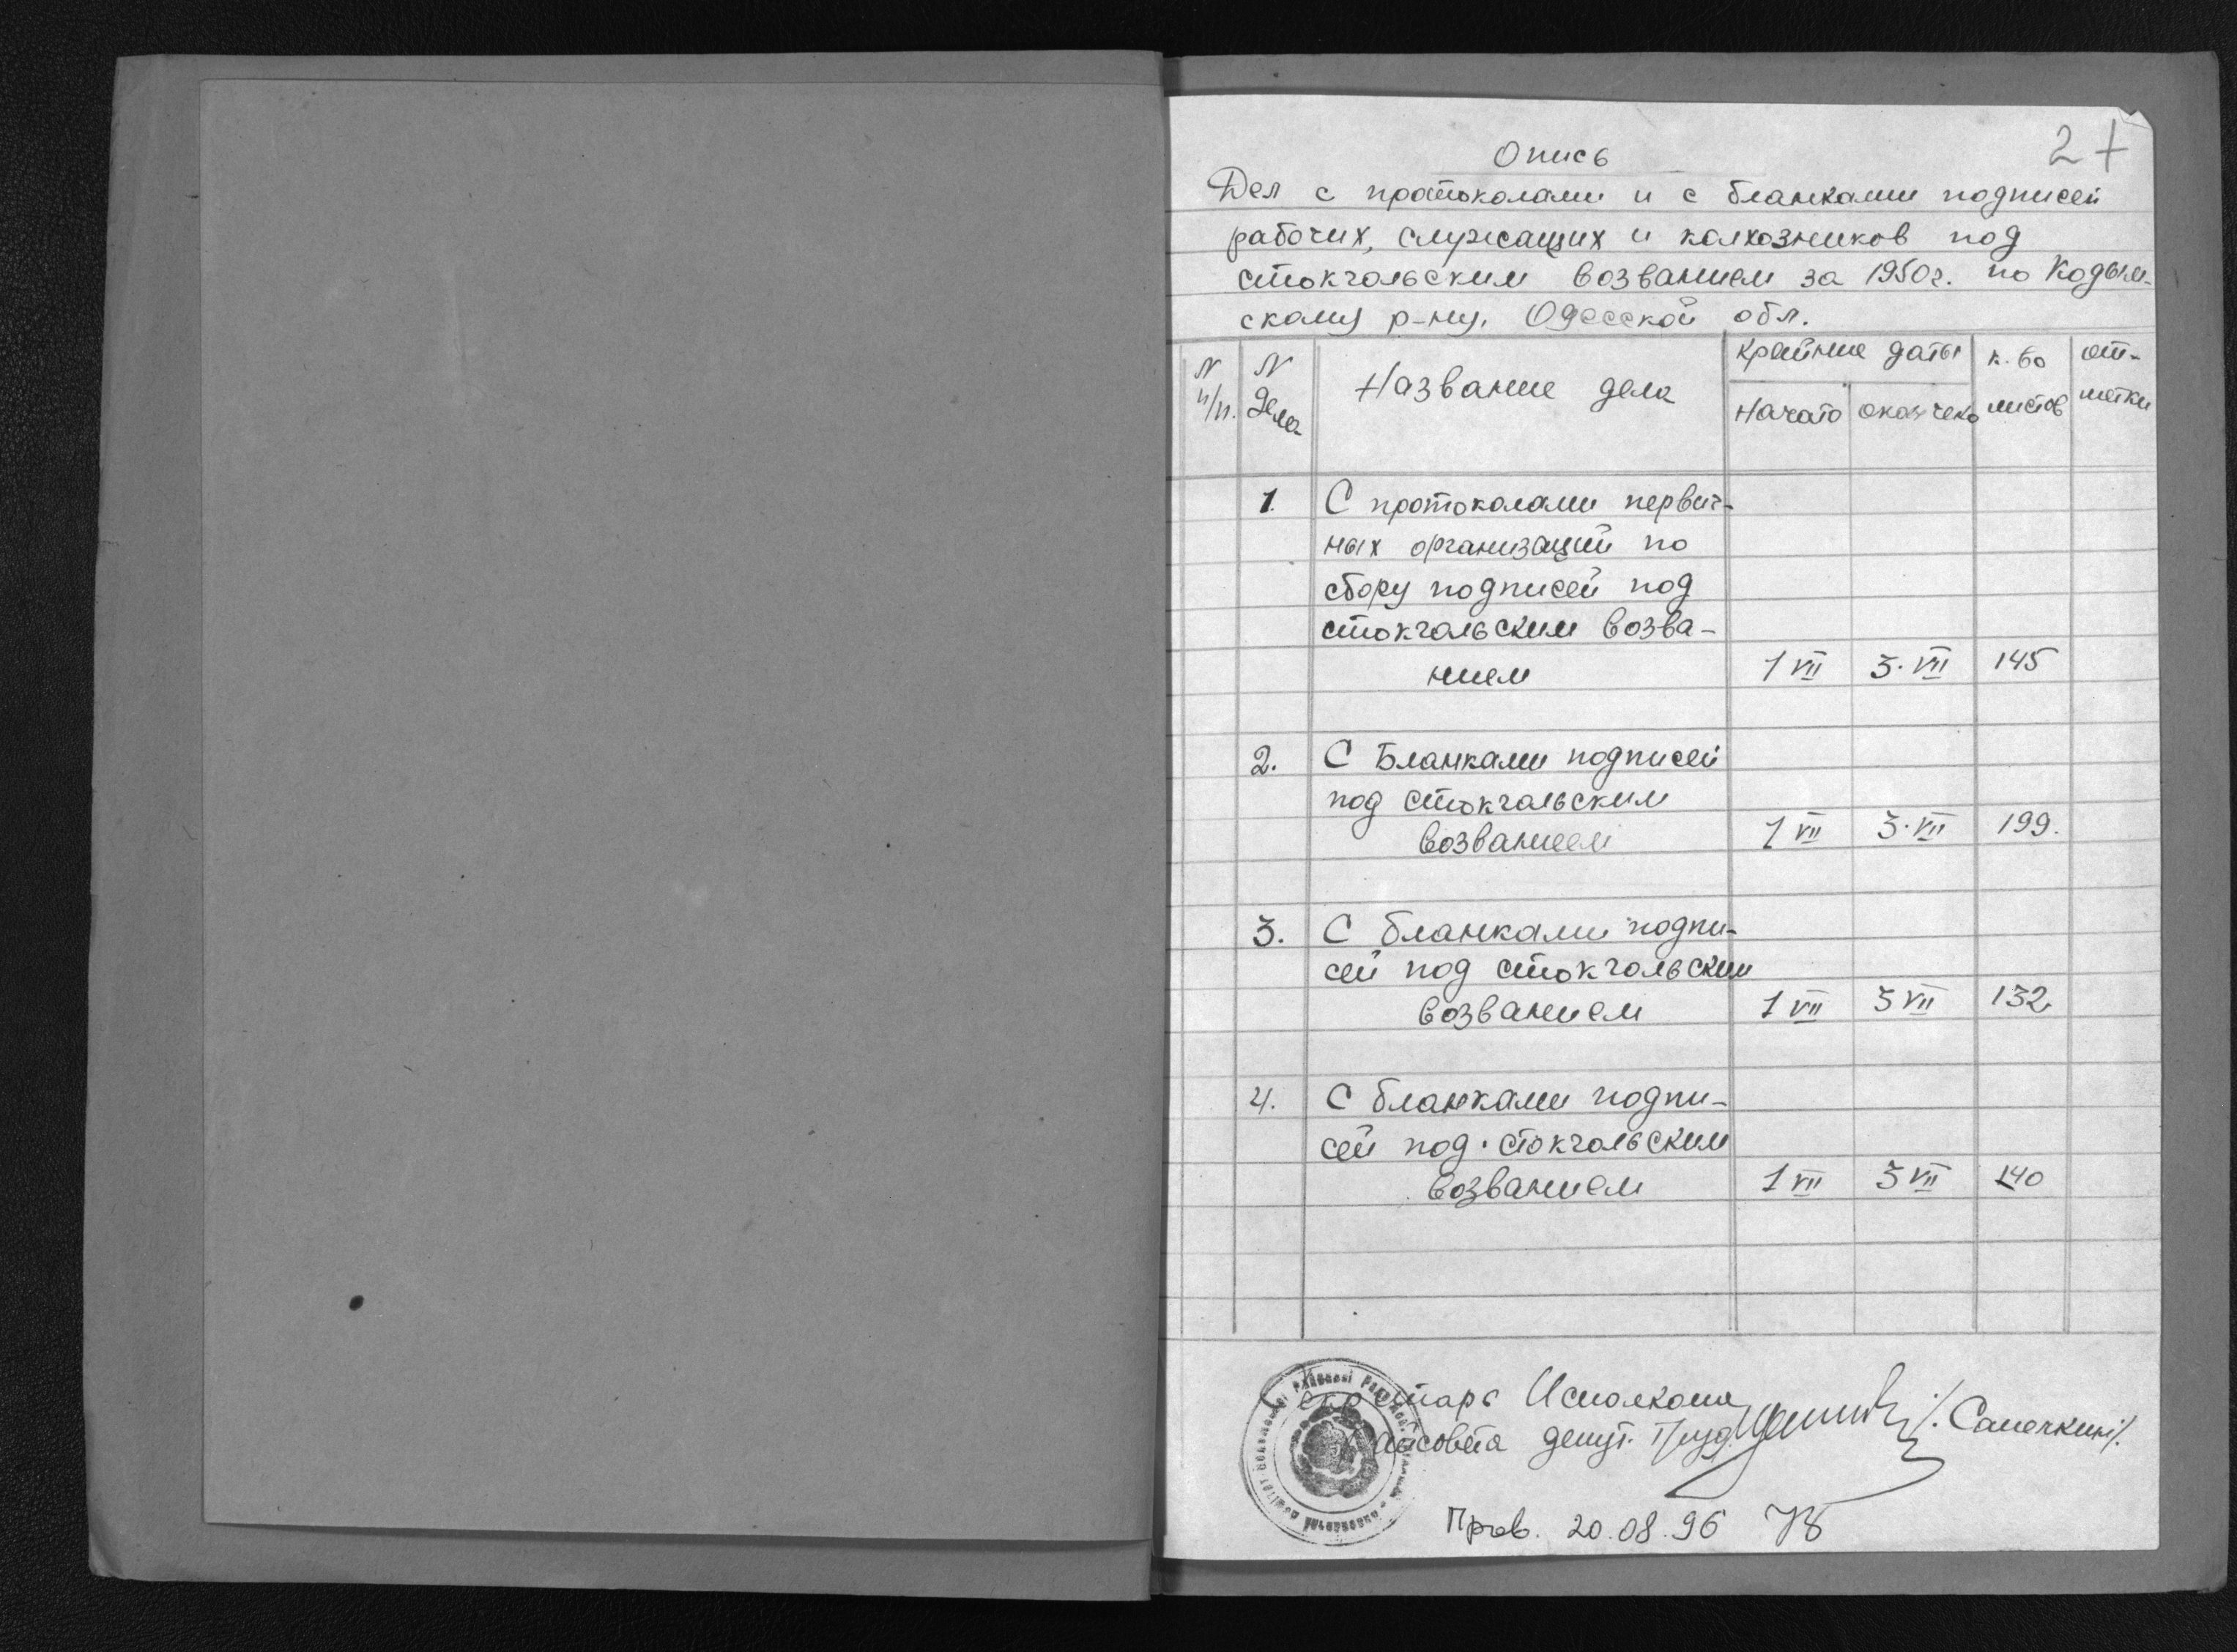 2 +
Опись
Дел с протоколами и с бланками подписей
рабочих, служащих и колхозников под
стокгольским воззванием за 1950г. по Кодым-
скому р-ну, Одесской обл.
N п/п.
N Дела
Название дела
Крайние даты
Начато
окончено
к-во листов
от-
метки
1. С протоколами первич-
ных организаций по
сбору подписей под
стокгольским возва-
нием 1 VII 3. VII 145
2. С Бланками подписей
под стокгольским
возванием 1 VII 3. VII 199.
3. С бланками подпи-
сей под стокгольским
возванием 1 VII 3 VII 132
4. С бланками подпи-
сей под стокгольским
возванием 1 VII 3 VII 140
Секретарь Исполкома
Райсовета депут. Труд. /. Самочкин/.
Пров. 20.08.96